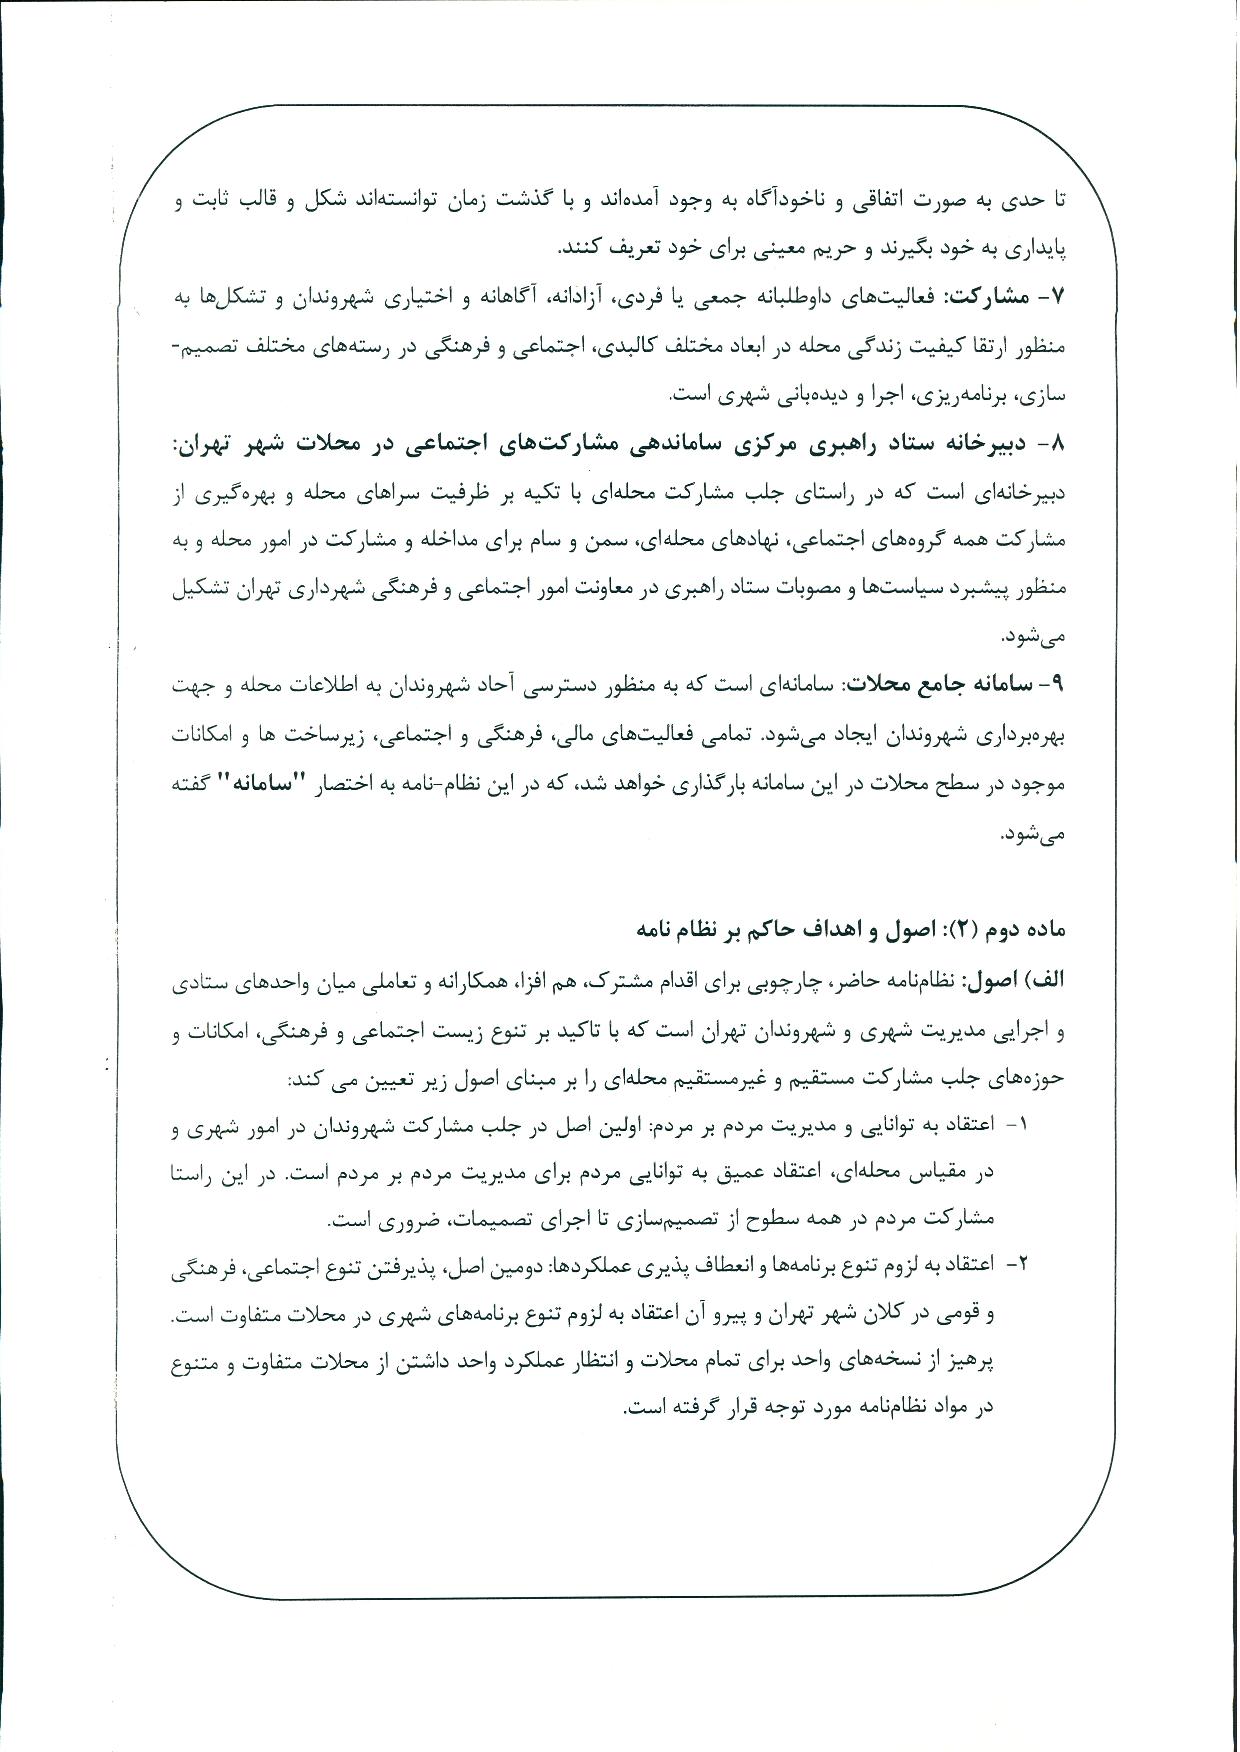 تا حدی به صورت اتفاقی و ناخودآگاه به وجود آمده‌اند و با گذشت زمان توانسته‌اند شکل و قالب ثابت و
پایداری به خود بگیرند و حریم معینی برای خود تعریف کنند.
۷- مشارکت: فعالیت‌های داوطلبانه جمعی یا فردی، آزادانه، آگاهانه و اختیاری شهروندان و تشکل‌ها به
منظور ارتقا کیفیت زندگی محله در ابعاد مختلف کالبدی، اجتماعی و فرهنگی در رسته‌های مختلف تصمیم-
سازی، برنامه‌ریزی، اجرا و دیده‌بانی شهری است.
۸- دبیرخانه ستاد راهبری مرکزی ساماندهی مشارکت‌های اجتماعی در محلات شهر تهران:
دبیرخانه‌ای است که در راستای جلب مشارکت محله‌ای با تکیه بر ظرفیت سراهای محله و بهره‌گیری از
مشارکت همه گروه‌های اجتماعی، نهادهای محله‌ای، سمن و سام برای مداخله و مشارکت در امور محله و به
منظور پیشبرد سیاست‌ها و مصوبات ستاد راهبری در معاونت امور اجتماعی و فرهنگی شهرداری تهران تشکیل
می‌شود.
۹- سامانه جامع محلات: سامانه‌ای است که به منظور دسترسی آحاد شهروندان به اطلاعات محله و جهت
بهره‌برداری شهروندان ایجاد می‌شود. تمامی فعالیت‌های مالی، فرهنگی و اجتماعی، زیرساخت ها و امکانات
موجود در سطح محلات در این سامانه بارگذاری خواهد شد، که در این نظام-نامه به اختصار "سامانه" گفته
می‌شود.
ماده دوم (۲): اصول و اهداف حاکم بر نظام نامه
الف) اصول: نظام‌نامه حاضر، چارچوبی برای اقدام مشترک، هم افزا، همکارانه و تعاملی میان واحدهای ستادی
و اجرایی مدیریت شهری و شهروندان تهران است که با تاکید بر تنوع زیست اجتماعی و فرهنگی، امکانات و
حوزه‌های جلب مشارکت مستقیم و غیرمستقیم محله‌ای را بر مبنای اصول زیر تعیین می کند:
۱- اعتقاد به توانایی و مدیریت مردم بر مردم: اولین اصل در جلب مشارکت شهروندان در امور شهری و
در مقیاس محله‌ای، اعتقاد عمیق به توانایی مردم برای مدیریت مردم بر مردم است. در این راستا
مشارکت مردم در همه سطوح از تصمیم‌سازی تا اجرای تصمیمات، ضروری است.
۲- اعتقاد به لزوم تنوع برنامه‌ها و انعطاف پذیری عملکردها: دومین اصل، پذیرفتن تنوع اجتماعی، فرهنگی
و قومی در کلان شهر تهران و پیرو آن اعتقاد به لزوم تنوع برنامه‌های شهری در محلات متفاوت است.
پرهیز از نسخه‌های واحد برای تمام محلات و انتظار عملکرد واحد داشتن از محلات متفاوت و متنوع
در مواد نظام‌نامه مورد توجه قرار گرفته است.